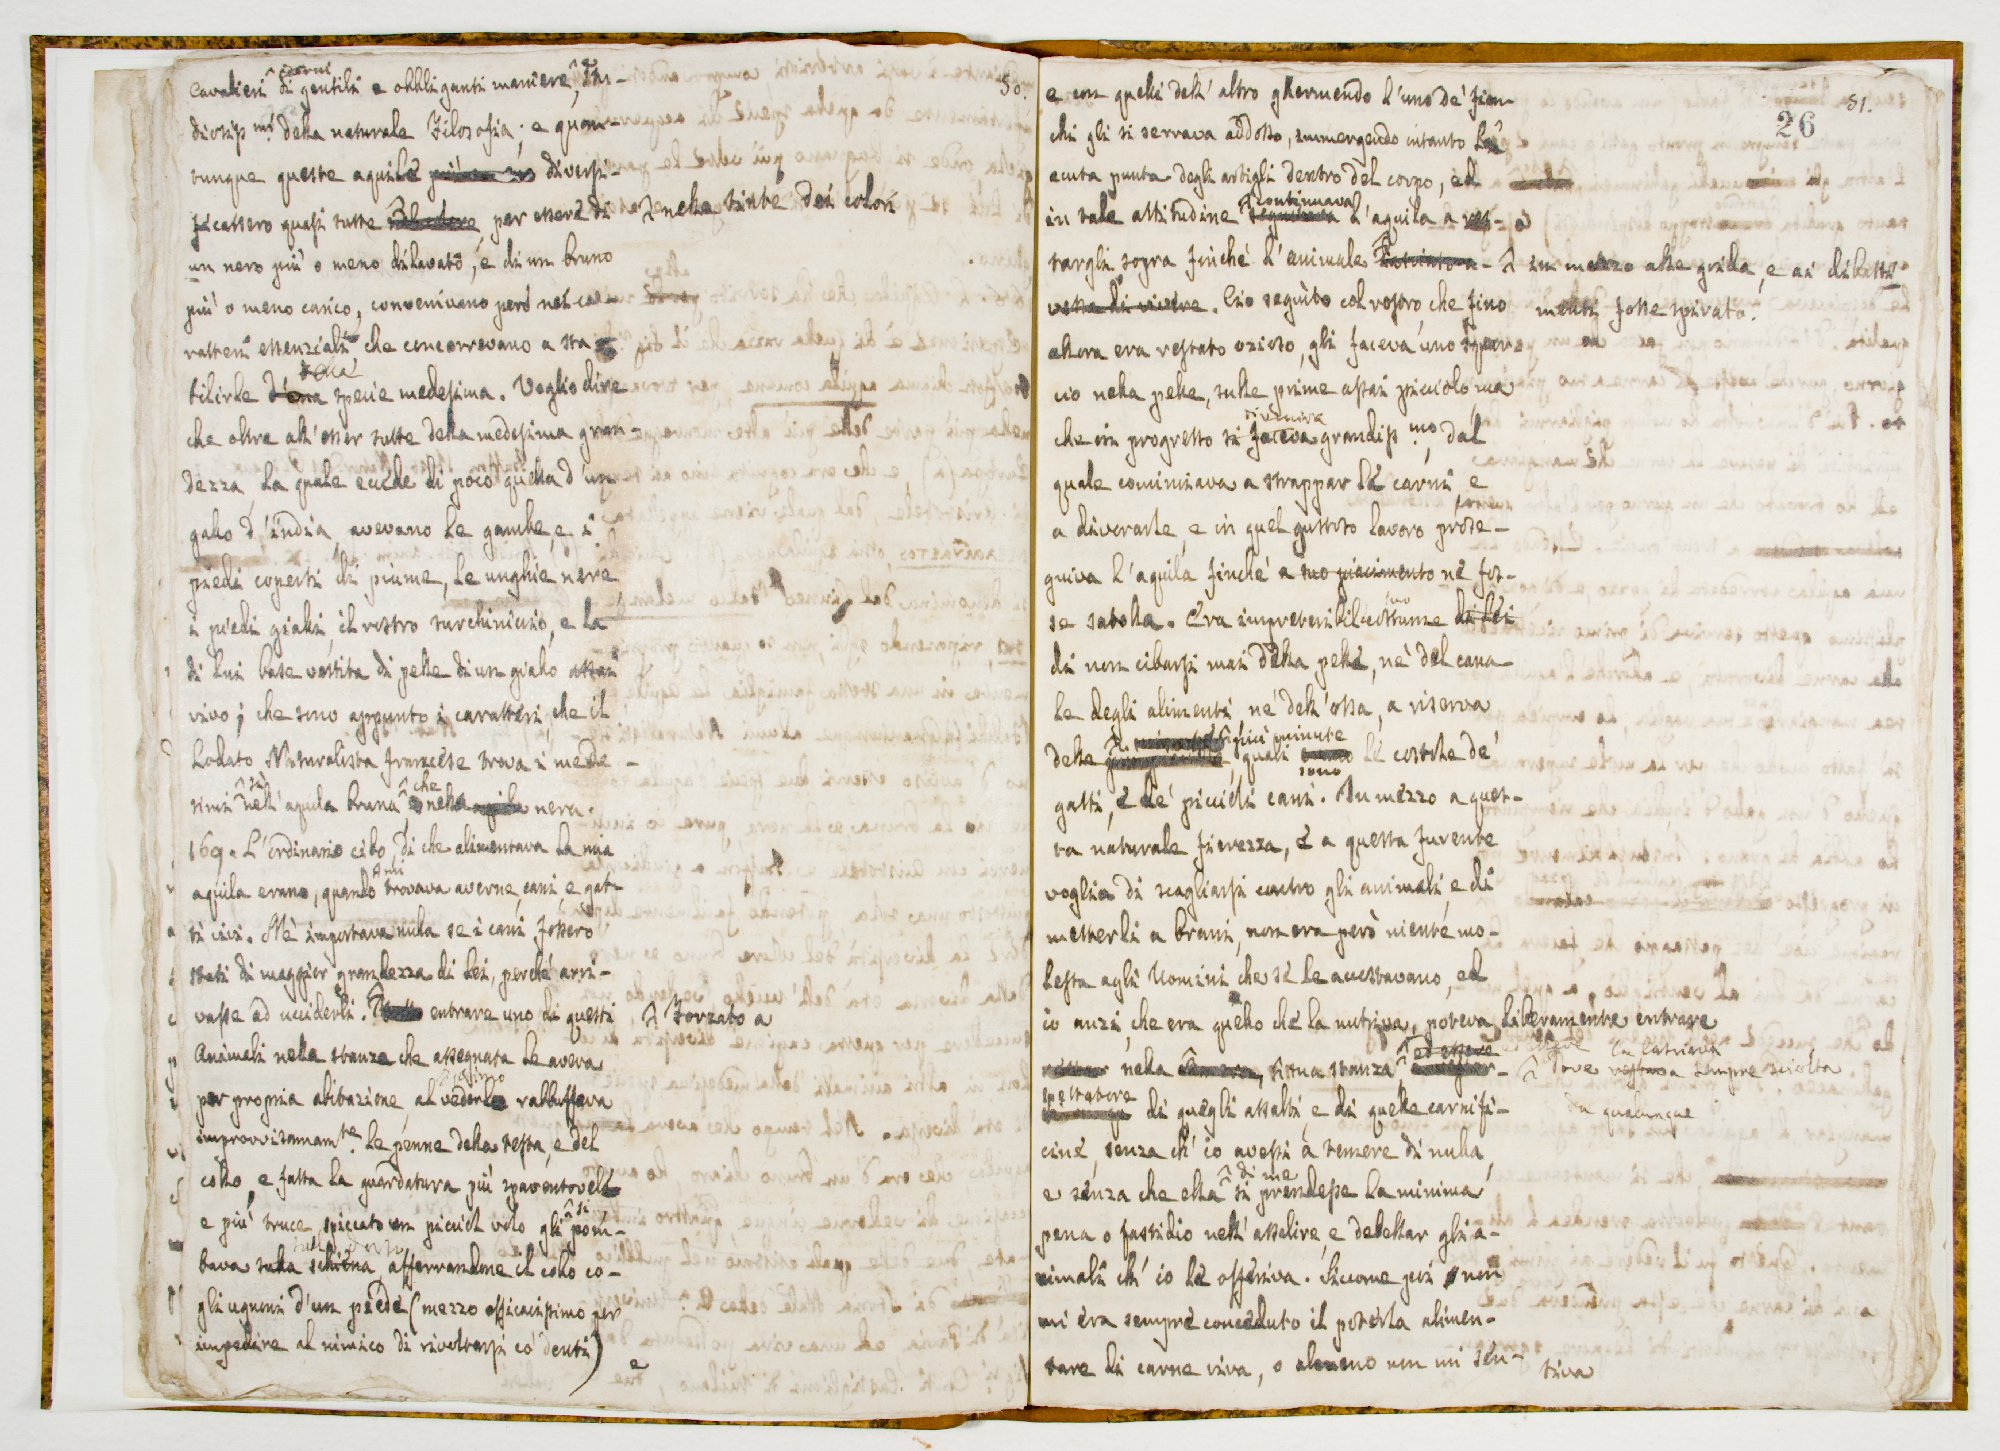 50.
Cavalieri di gentili e obbliganti maniere, e stu-
diosiss.mi della naturale Filosofia; e quan-
tunque queste aquile diversi-
ficassero quasi tutte nelle tinte dei colori, per essere di
un nero più o meno dilavato, e di un bruno
più o meno carico, convenivano però nei ca-
ratteri essenziali, che concorrevano a sta-
bilirle della specie medesima. Voglio dire
che oltre all'esser tutte della medesima gran-
dezza, la quale eccede di poco quella d'un
gallo d'india, avevano le gambe, e i
piedi coperti di piume, le unghie nere
i piedi gialli, il rostro turchiniccio, e la
di lui base vestita di pelle di un giallo assai
vivo; che sono appunto i caratteri, che il
lodato Naturalista francese trova i mede-
simi sì nell'aquila bruna che nella nera.
169. L'ordinario cibo, di che alimentava la mia
aquila erano, quando trovava averne, cani, e gat-
ti vivi. Nè importava nulla se i cani fossero
stati di maggior grandezza di lei, perché arri-
vasse ad ucciderli. Forzato a entrare uno di questi
Animali nella stanza che assegnata le aveva
per propria abitazione, al vederlo rabbuffava
improvvisamam.te le penne della testa, e del
collo, e fatta la guardatura più spaventevole
e più truce, spiccato un picciol volo gli si piom-
bava sulla schiena, afferrandone il collo co-
gli ugnoni d'un piede (mezzo efficacissimo per
impedire al nimico di rivoltarsi co' denti)
e
51.
26
e con quelli dell'altro ghermendo l'uno de' fian-
chi gli si serrava addosso, immergendo intanto la
acuta punta degli artigli dentro del corpo, ed
in tale attitudine continuava l'aquila a res-
targli sopra finché l'animale in mezzo alle grida, e ai dibatti-
menti fosse spirato. Ciò seguito col rostro, che fino
allora era restato ozioso, gli faceva uno squar-
cio nella pelle, sulle prime assai picciolo, ma
che in progresso si faceva grandiss.mo, dal
quale cominciava a strappar le carni, e
a divorarle, e in quel gustoso lavoro prose-
guiva l'aquila finché a suo piacimento ne fos-
se satolla. Era impreteribil costume di lei
di non cibarsi mai della pelle, nè del cana
le degli alimenti, nè dell'ossa, a riserva
delle minute, quali sono le costole de'
gatti, e de' piccioli cani. In mezzo a ques-
ta naturale fierezza, e a questa furente
voglia di scagliarsi contro gli animali, e di
metterli a brani, non era però niente mo-
lesta agli Uomini che se le accostavano, ed
io anzi, che era quello che la nutriva, poteva liberamente entrare
nella sua stanza, dove la lasciava sempre sciolta
spettatore di quegli assalti, e di quelle carnifi-
cine, senza ch'io avessi a temere di nulla,
e senza che ella di me si prendesse la minima
pena o fastidio nell'assalire, e debellar gli a-
nimali ch'io le offeriva. Siccome poi non
mi era sempre conceduto il poterla alimen-
tare di carne viva, o almeno non mi sen-
tiva